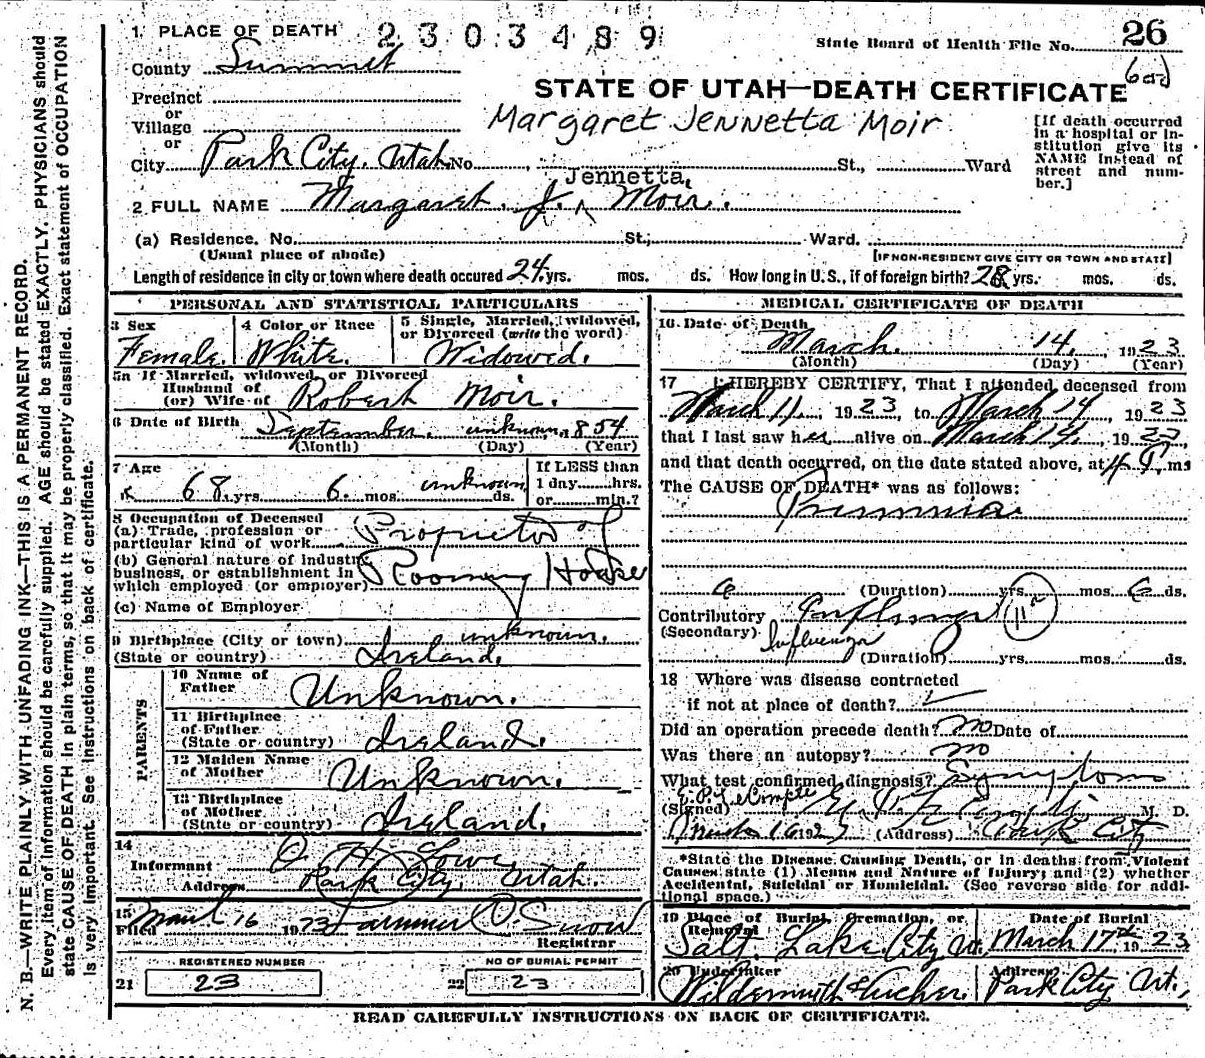 1. PLACE OF DEATH 2303489
State Board of Health File No. 26
County Summit
Precinct
or
Village
or
City Park City. Utah No. St., Ward
STATE OF UTAH—DEATH CERTIFICATE
Margaret Jennetta Moir
[If death occurred in a hospital or in-
stitution give its
NAME instead of
street and num-
ber.]
Jennetta
2 FULL NAME Margaret. J. Moir.
(a) Residence. No. St.; Ward.
(Usual place of abode) [IF NON-RESIDENT GIVE CITY OR TOWN AND STATE]
Length of residence in city or town where death occured 24 yrs. mos. ds. How long in U.S., if of foreign birth? 28 yrs. mos. ds.
PERSONAL AND STATISTICAL PARTICULARS
3 Sex
Female.
4 Color or Race
White.
5 Single, Married, Widowed,
or Divorced (write the word)
Widowed.
5a If Married, widowed, or Divorced
Husband of
(or) Wife of Robert Moir.
6 Date of Birth September. unknown, 1854
(Month) (Day) (Year)
7 Age
68 yrs. 6. mos. unknown ds.
If LESS than
1 day hrs.
or min.?
8 Occupation of Deceased
(a) Trade, profession or
particular kind of work Proprietor of
(b) General nature of industry,
business, or establishment in
which employed (or employer) Rooming House
(c) Name of Employer
9 Birthplace (City or town) unknown.
(State or country) Ireland.
PARENTS
10 Name of
Father Unknown.
11 Birthplace
of Father
(State or country) Ireland.
12 Maiden Name
of Mother Unknown.
13 Birthplace
of Mother
(State or country) Ireland.
14
Informant O. H. Lowe
Address Park City, Utah.
15
Filed March 16 1923 O. Snow
Registrar
REGISTERED NUMBER
21 23
NO OF BURIAL PERMIT
22 23
MEDICAL CERTIFICATE OF DEATH
16 Date of Death
March. 14, 1923
(Month) (Day) (Year)
17 I HEREBY CERTIFY, That I attended deceased from
March 11, 1923, to March 14, 1923
that I last saw her alive on March 14, 1923
and that death occurred, on the date stated above, at 4 P. ms
The CAUSE OF DEATH* was as follows:
Pneumonia
6 (Duration) yrs. mos. 6 ds.
Contributory Influenza 11
(Secondary) Influenza
(Duration) yrs. mos. ds.
18 Where was disease contracted
if not at place of death?
Did an operation precede death? no Date of
Was there an autopsy? no
What test confirmed diagnosis? Symptoms
(Signed) M D.
March 16 1923 (Address) Park City
*State the Disease Causing Death, or in deaths from Violent
Causes state (1) Means and Nature of Injury; and (2) whether
Accidental, Suicidal or Homicidal. (See reverse side for addi-
tional space.)
19 Place of Burial, Cremation, or
Removal
Salt Lake City
Date of Burial
March 17th 1923
20 Undertaker
Wildermuth & Archer.
Address
Park City Ut.,
READ CAREFULLY INSTRUCTIONS ON BACK OF CERTIFICATE.
N. B.—WRITE PLAINLY WITH UNFADING INK—THIS IS A PERMANENT RECORD.
Every item of information should be carefully supplied. AGE should be stated EXACTLY. PHYSICIANS should
state CAUSE OF DEATH in plain terms, so that it may be properly classified. Exact statement of OCCUPATION
is very important. See instructions on back of certificate.